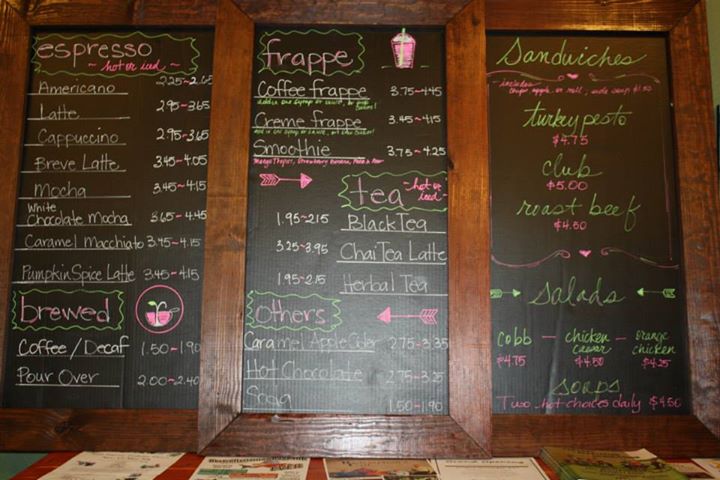 espresso
~ hot or iced ~
Americano 2.25~2.65
Latte 2.95~3.65
Cappuccino 2.95~3.65
Breve Latte 3.45~4.05
Mocha 3.45~4.15
White
Chocolate Mocha 3.65~4.45
Caramel Macchiato 3.45~4.15
Pumpkin Spice Latte 3.45~4.15
brewed
Coffee/Decaf 1.50~1.90
Pour Over 2.00~2.40
frappe
Coffee frappe 3.75~4.45
Creme frappe 3.45~4.15
Smoothie 3.75~4.25
Mango, Strawberry Banana,
tea ~hot or iced~
1.95~2.15 Black Tea
3.25~3.95 Chai Tea Latte
1.95~2.15 Herbal Tea
others
Caramel Apple Cider 2.75~3.35
Hot Chocolate 2.75~3.25
Soda 1.50~1.90
Sandwiches
includes
chips, apple, or roll, side soup $1.50
turkey pesto
$4.75
club
$5.00
roast beef
$4.50
Salads
cobb — chicken caesar — orange chicken
$4.75 $4.50 $4.25
soups
Two hot choices daily $4.50